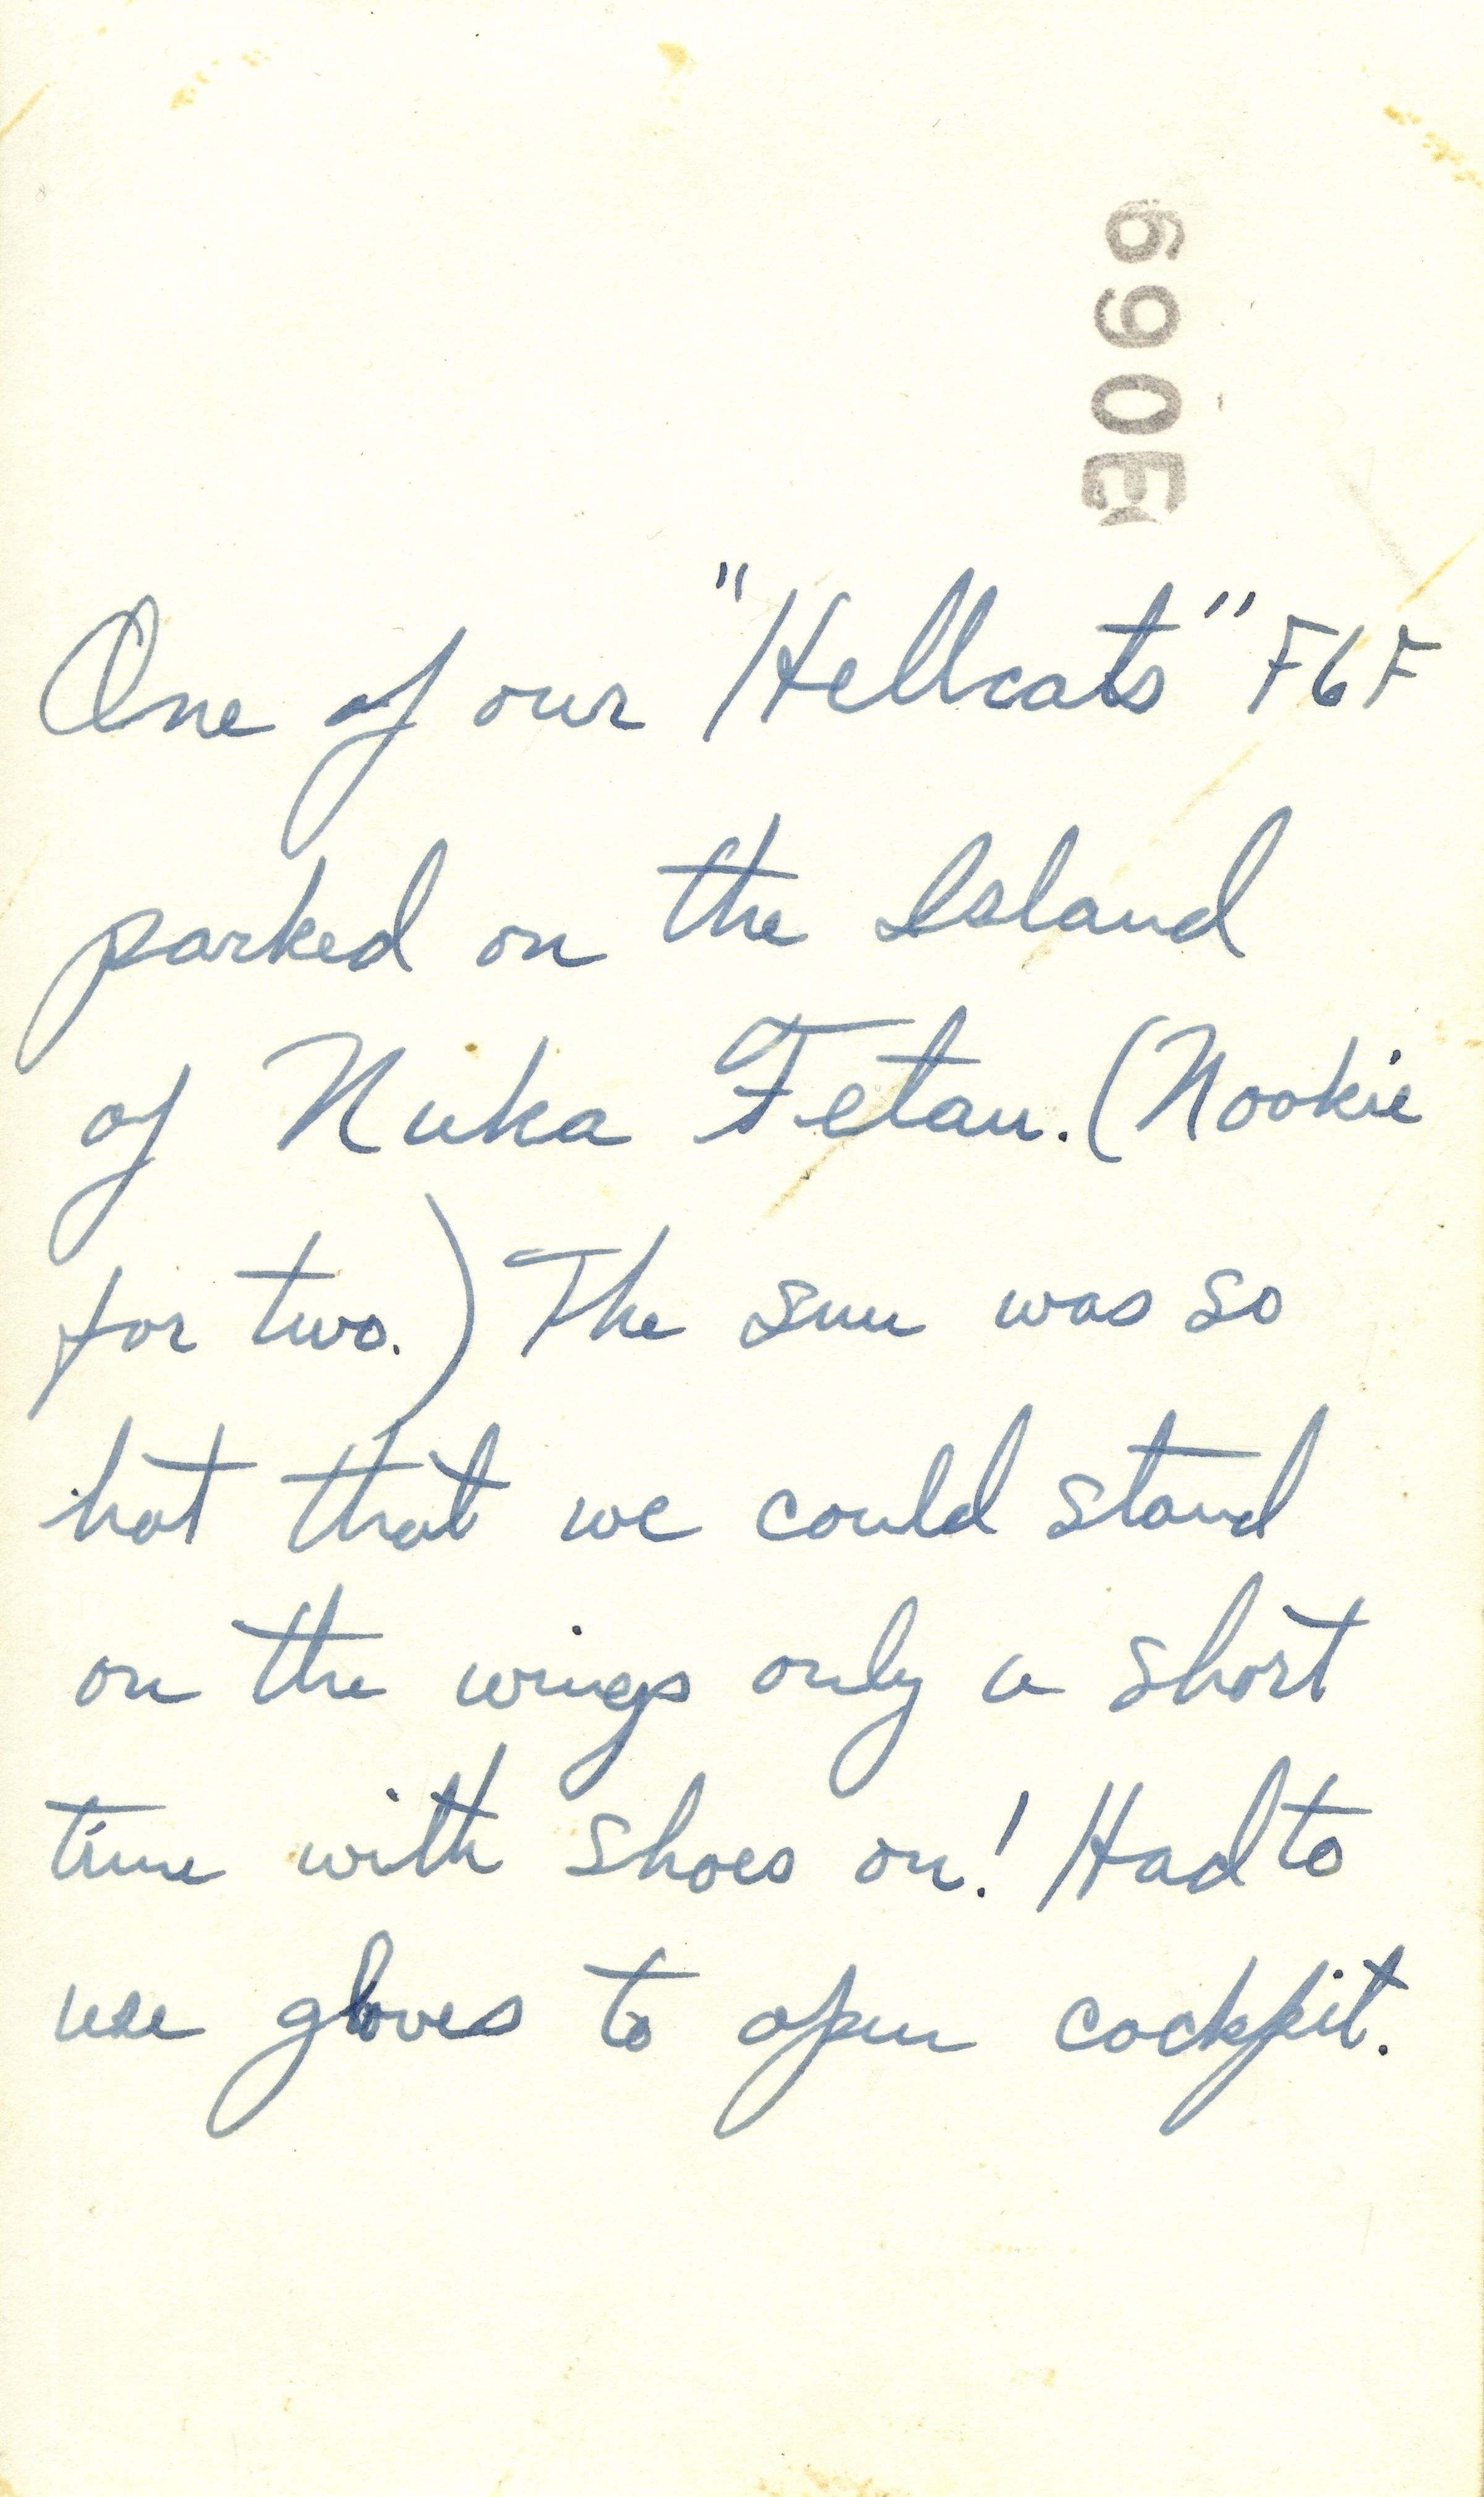 3069
One of our "Hellcats" F6F
parked on the Island
of Nuka Fetau. (Nookie
for two.) The sun was so
hot that we could stand
on the wings only a short
time with shoes on! Had to
use gloves to open cockpit.